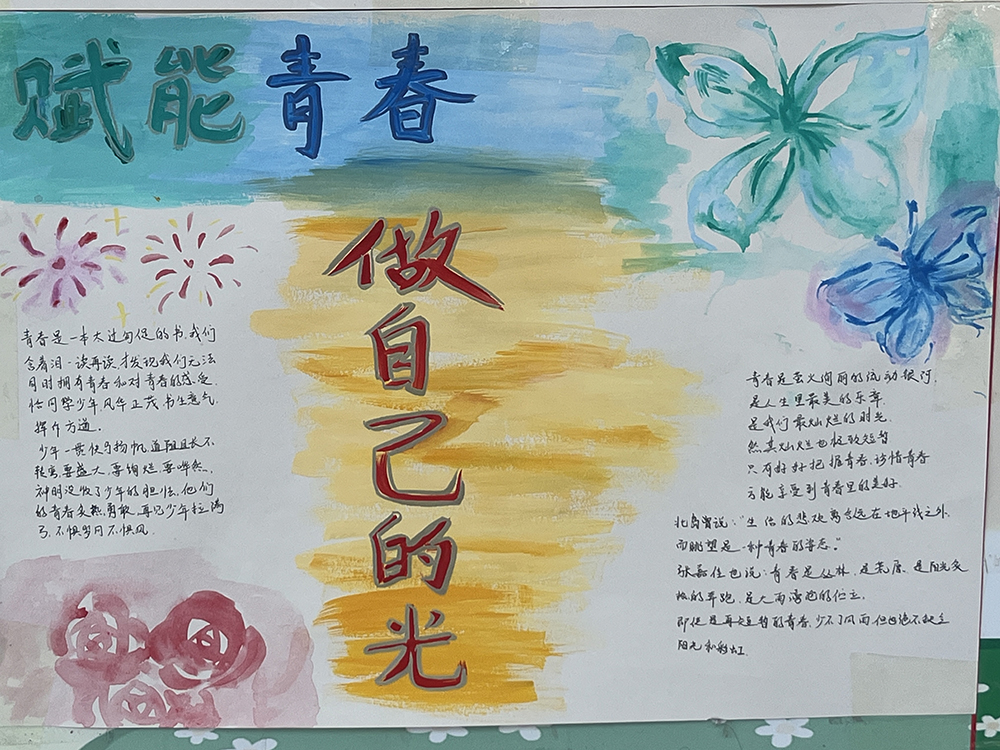 赋能青春
做自己的光
青春是一本太过仓促的书,我们
含着泪一读再读,才发现我们无法
同时拥有青春和对青春的感受.
恰同学少年,风华正茂,书生意气,
挥斥方遒。
少年一贯快马扬帆,道阻且长不
转弯,要盛大,要绚烂,要哗然.
神明没收了少年的胆怯,他们
的青春炙热勇敢,再见少年拉满
弓,不惧岁月不惧风.
青春是萤火绚丽的流动银河,
是人生里最美的乐章,
是我们最灿烂的时光.
然其灿烂也极致短暂
只有好好把握青春,珍惜青春
方能享受到青春里的美好.
北岛曾说:“生活的悲欢离合远在地平线之外,
而眺望是一种青春的姿态。”
张嘉佳也说:青春是丛林,是荒原,是阳光炙
热的奔跑,是大雨滂沱的伫立。
即使是再短暂的青春,少不了风雨,但也绝不缺乏
阳光和彩虹.